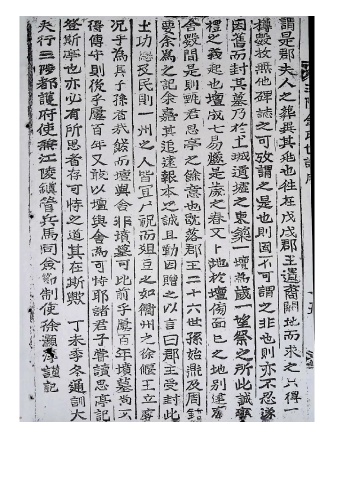 謂是郡夫人之葬與其 也往在戊戌郡王遺裔闢地而求之只得一
樽數 故無他碑誌之可攷謂之是也則固不可謂之非也則亦不忍遂
因舊而封其墓乃於土城遺墟之東築一壇爲歲一望祭之所此誠
禮之義起也壇成七易 是歲之春又卜地於壇傍面巳之地別建齋
舍數間是則 君思亭之餘意也 落郡王二十六世孫始鼎及周錦
要余爲之記余嘉其追遠報本之誠且勤因贈之以言曰郡王受封此
土功 及民則一州之人皆宜尸祝而俎豆之如衢州之徐偃王立廟
况乎爲其子孫者哉然而壇與舍非墳墓可比前乎屢百年墳墓尚不
得傳守則後乎屢百年又敢以壇與舍爲可恃耶諸君子嘗讀思亭記
登斯亭也亦必有所思者存可恃之道其在斯歟 丁未季冬通訓大
夫行三陟都護府使兼江陵鎭管兵馬同僉節制使徐灝淳謹記